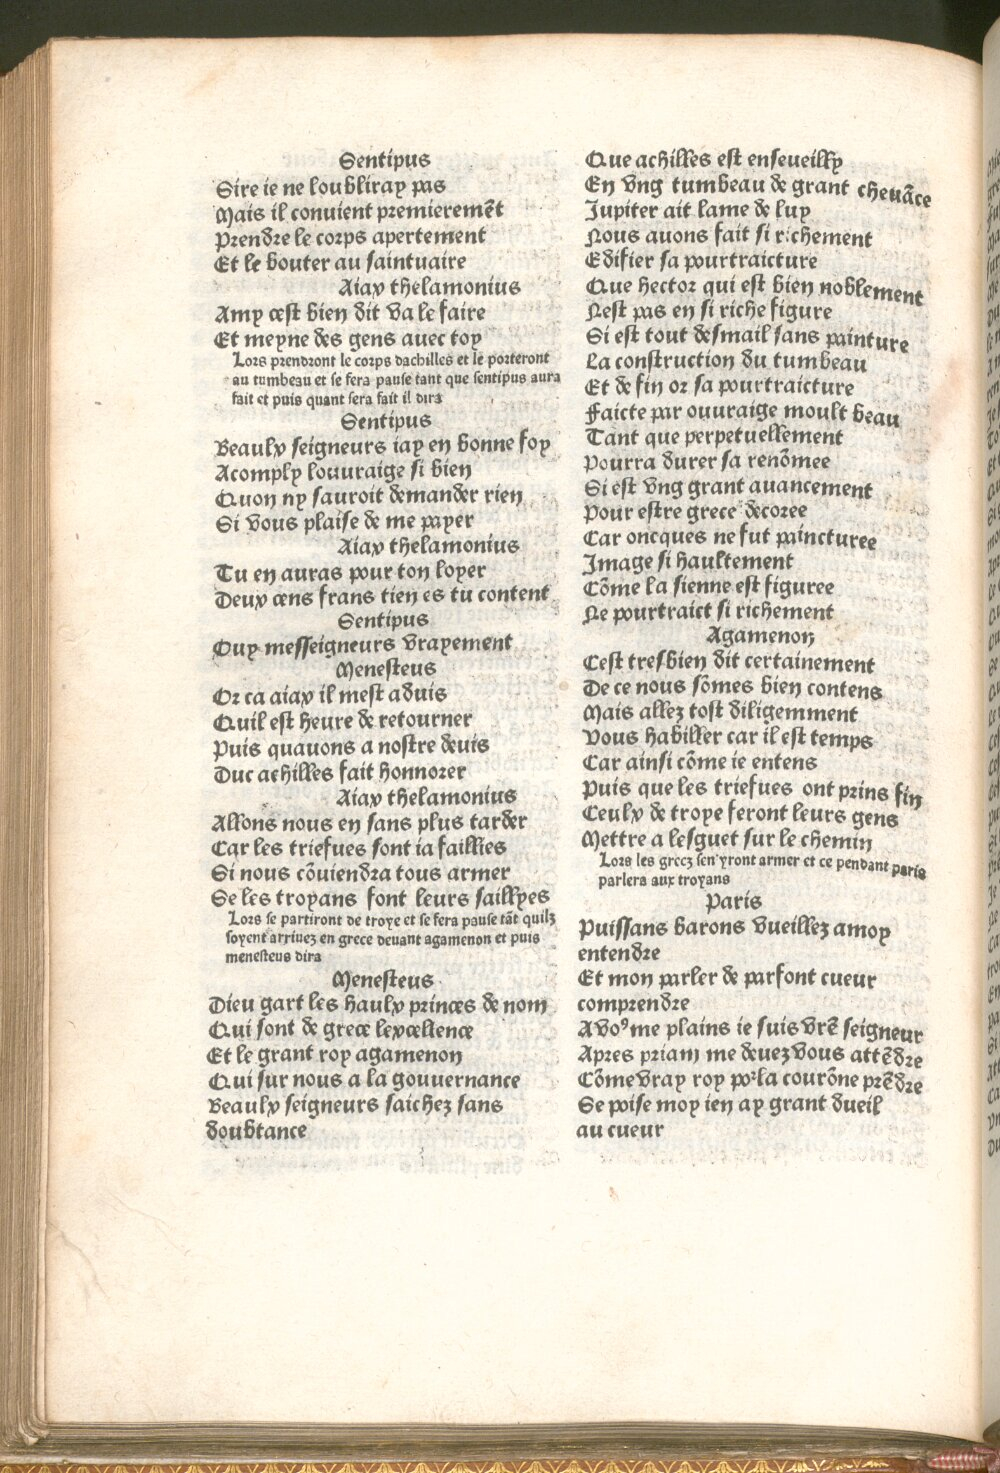 Sentipus
Sire ie ne loubliray pas
Mais il conuient premieremēt
Prendre le corps apertement
Et le bouter au saintuaire
Aiax thelamonius
Amy cest bien dit va le faire
Et meyne des gens auec toy
Lors prendront le corps dachilles et le porteront
au tumbeau et se fera pause tant que sentipus aura
fait et puis quant sera fait il dira
Sentipus
Beaulx seigneurs iay en bonne foy
Acomply louuraige si bien
Quon ny sauroit demander rien
Si vous plaise de me payer
Aiax thelamonius
Tu en auras pour ton loyer
Deux cens frans tien es tu content
Sentipus
Ouy messeigneurs vrayement
Menesteus
Or ca aiax il mest aduis
Quil est heure de retourner
Puis quauons a nostre deuis
Duc achilles fait honnorer
Aiax thelamonius
Allons nous en sans plus tarder
Car les triefues sont ia faillies
Si nous cōuiendra tous armer
Se les troyans font leurs saillyes
Lors se partiront de troye et se fera pause tāt quilz
soyent arriuez en grece deuant agamenon et puis
menesteus dira
Menesteus
Dieu gart les haulx princes de nom
Qui sont de grece lexcellence
Et le grant roy agamenon
Qui sur nous a la gouuernance
Beaulx seigneurs saichez sans
doubtance
Que achilles est enseuelly
En vng tumbeau de grant cheuāce
Jupiter ait lame de luy
Nous auons fait si richement
Edifier sa pourtraicture
Que hector qui est bien noblement
Nest pas en si riche figure
Si est tout desmail sans painture
La construction du tumbeau
Et de fin or sa pourtraicture
Faicte par ouuraige moult beau
Tant que perpetuellement
Pourra durer sa renōmee
Si est vng grant auancement
Pour estre grece decoree
Car oncques ne fut paincturee
Image si haultement
Cōme la sienne est figuree
Ne pourtraict si richement
Agamenon
Cest tresbien dit certainement
De ce nous sōmes bien contens
Mais allez tost diligemment
Vous habiller car il est temps
Car ainsi cōme ie entens
Puis que les triefues ont prins fin
Ceulx de troye feront leurs gens
Mettre a lesguet sur le chemin
Lors les grecz sen yront armer et ce pendant paris
parlera aux troyans
Paris
Puissans barons vueillez a moy
entendre
Et mon parler de parfont cueur
comprendre
A voꝰ me plains ie suis vrē seigneur
Apres priam me deuez vous attēdre
Cōme vray roy poʳ la courōne prēdre
Se poise moy ien ay grant dueil
au cueur